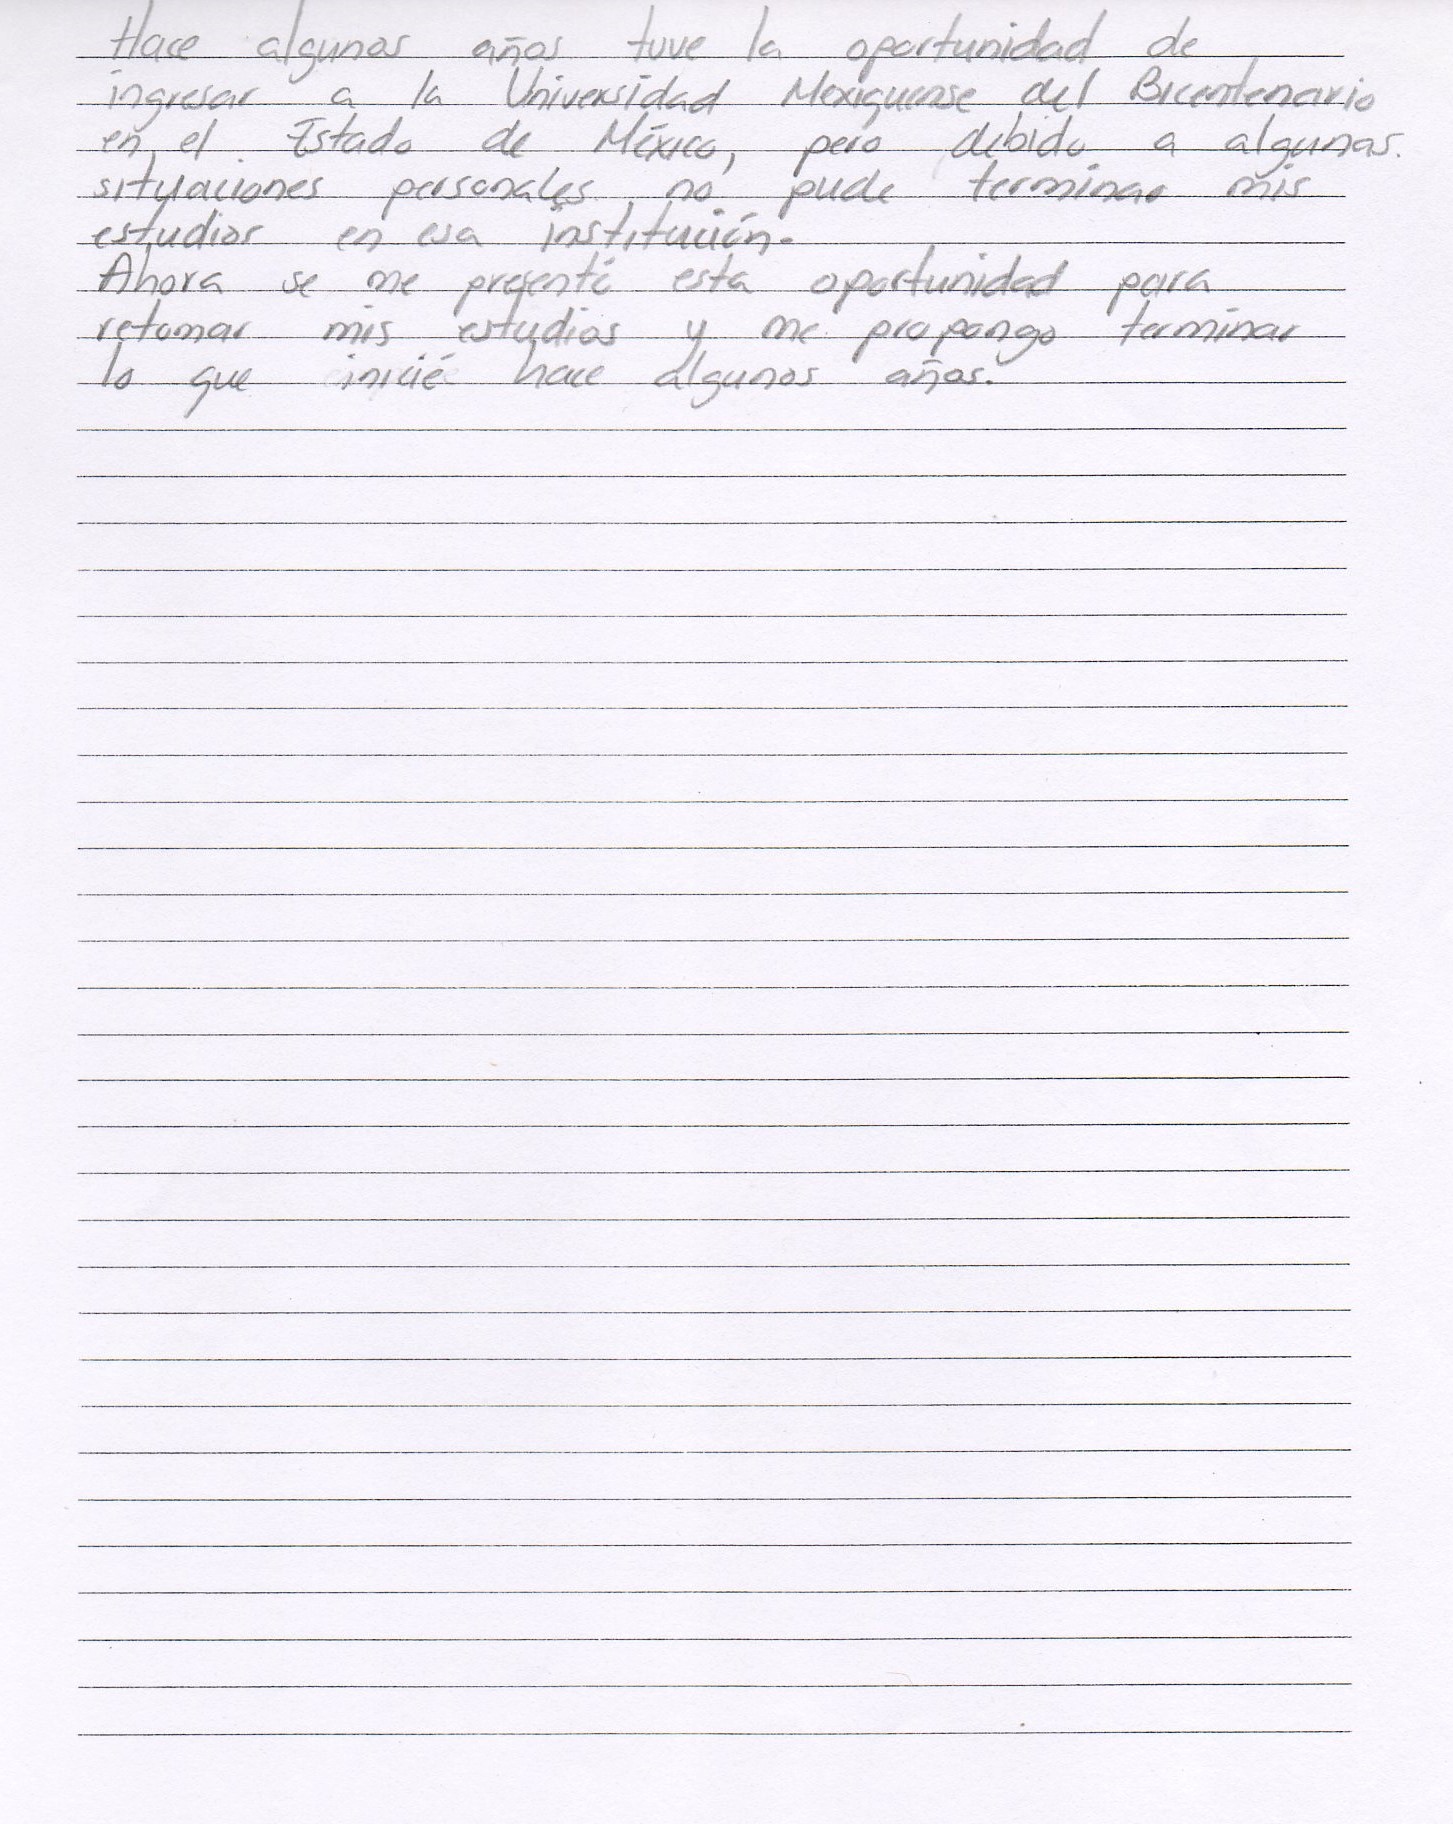 Hace algunos años tuve la oportunidad de
ingresar a la Universidad Mexiquense del Bicentenario
en el Estado de México, pero debido a algunas
situaciones personales no pude terminar mis
estudios en esa institución.
Ahora se me presentó esta oportunidad para
retomar mis estudios y me propongo terminar
lo que inicié hace algunos años.